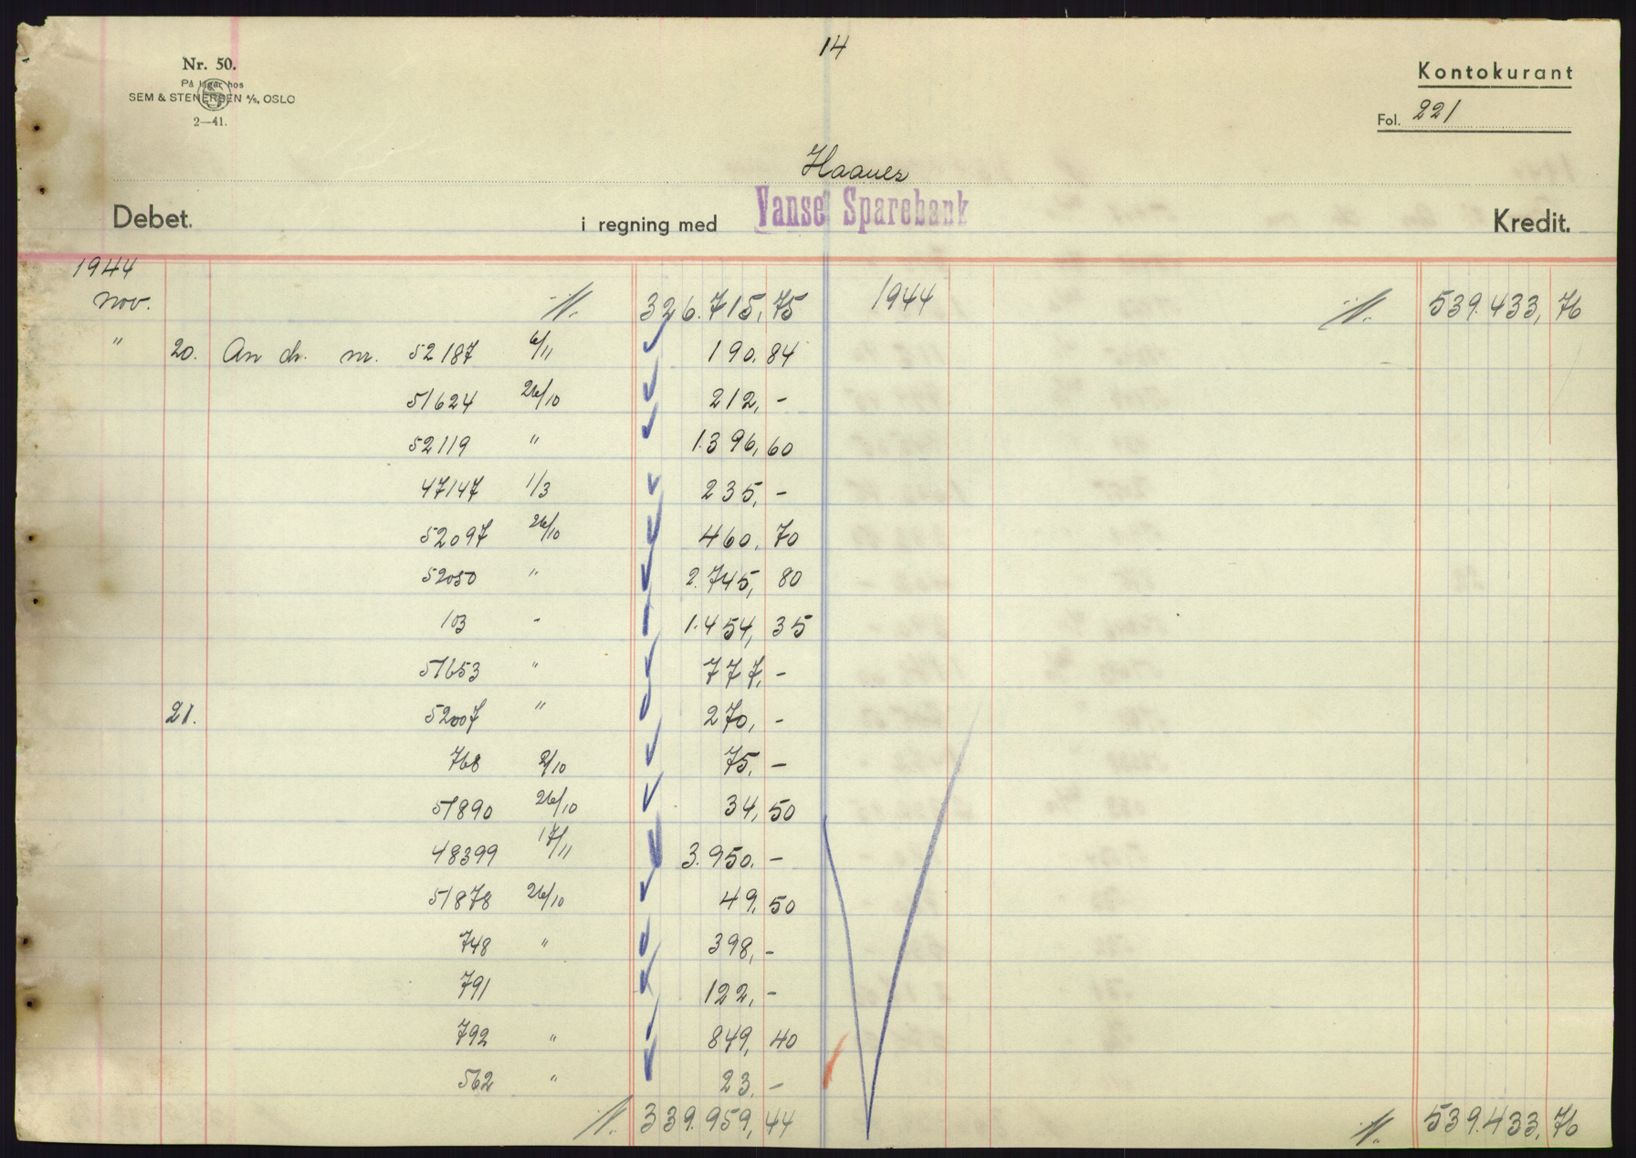 14
Nr. 50.
På lager hos
SEM & STENERSEN A/S, OSLO
2—41.
Kontokurant
Fol. 221
Haanes
Debet. i regning med Vanse Sparebank Kredit.
1944
nov. 326.715,75 1944 539.433,76
" 20. An ch. nr. 52187 6/11 190.84
51624 26/10 212,-
52119 " 1.396,60
47147 1/3 235,-
52097 26/10 460,70
52050 " 2.745,80
103 - 1.454,35
51653 " 777,-
21. 52007 " 270,-
768 2/10 75,-
51890 26/10 34,50
48399 17/11 3.950.-
51878 26/10 49,50
748 " 398,-
791 122,-
792 " 849,40
562 " 23.-
339.959,44 539.433,76